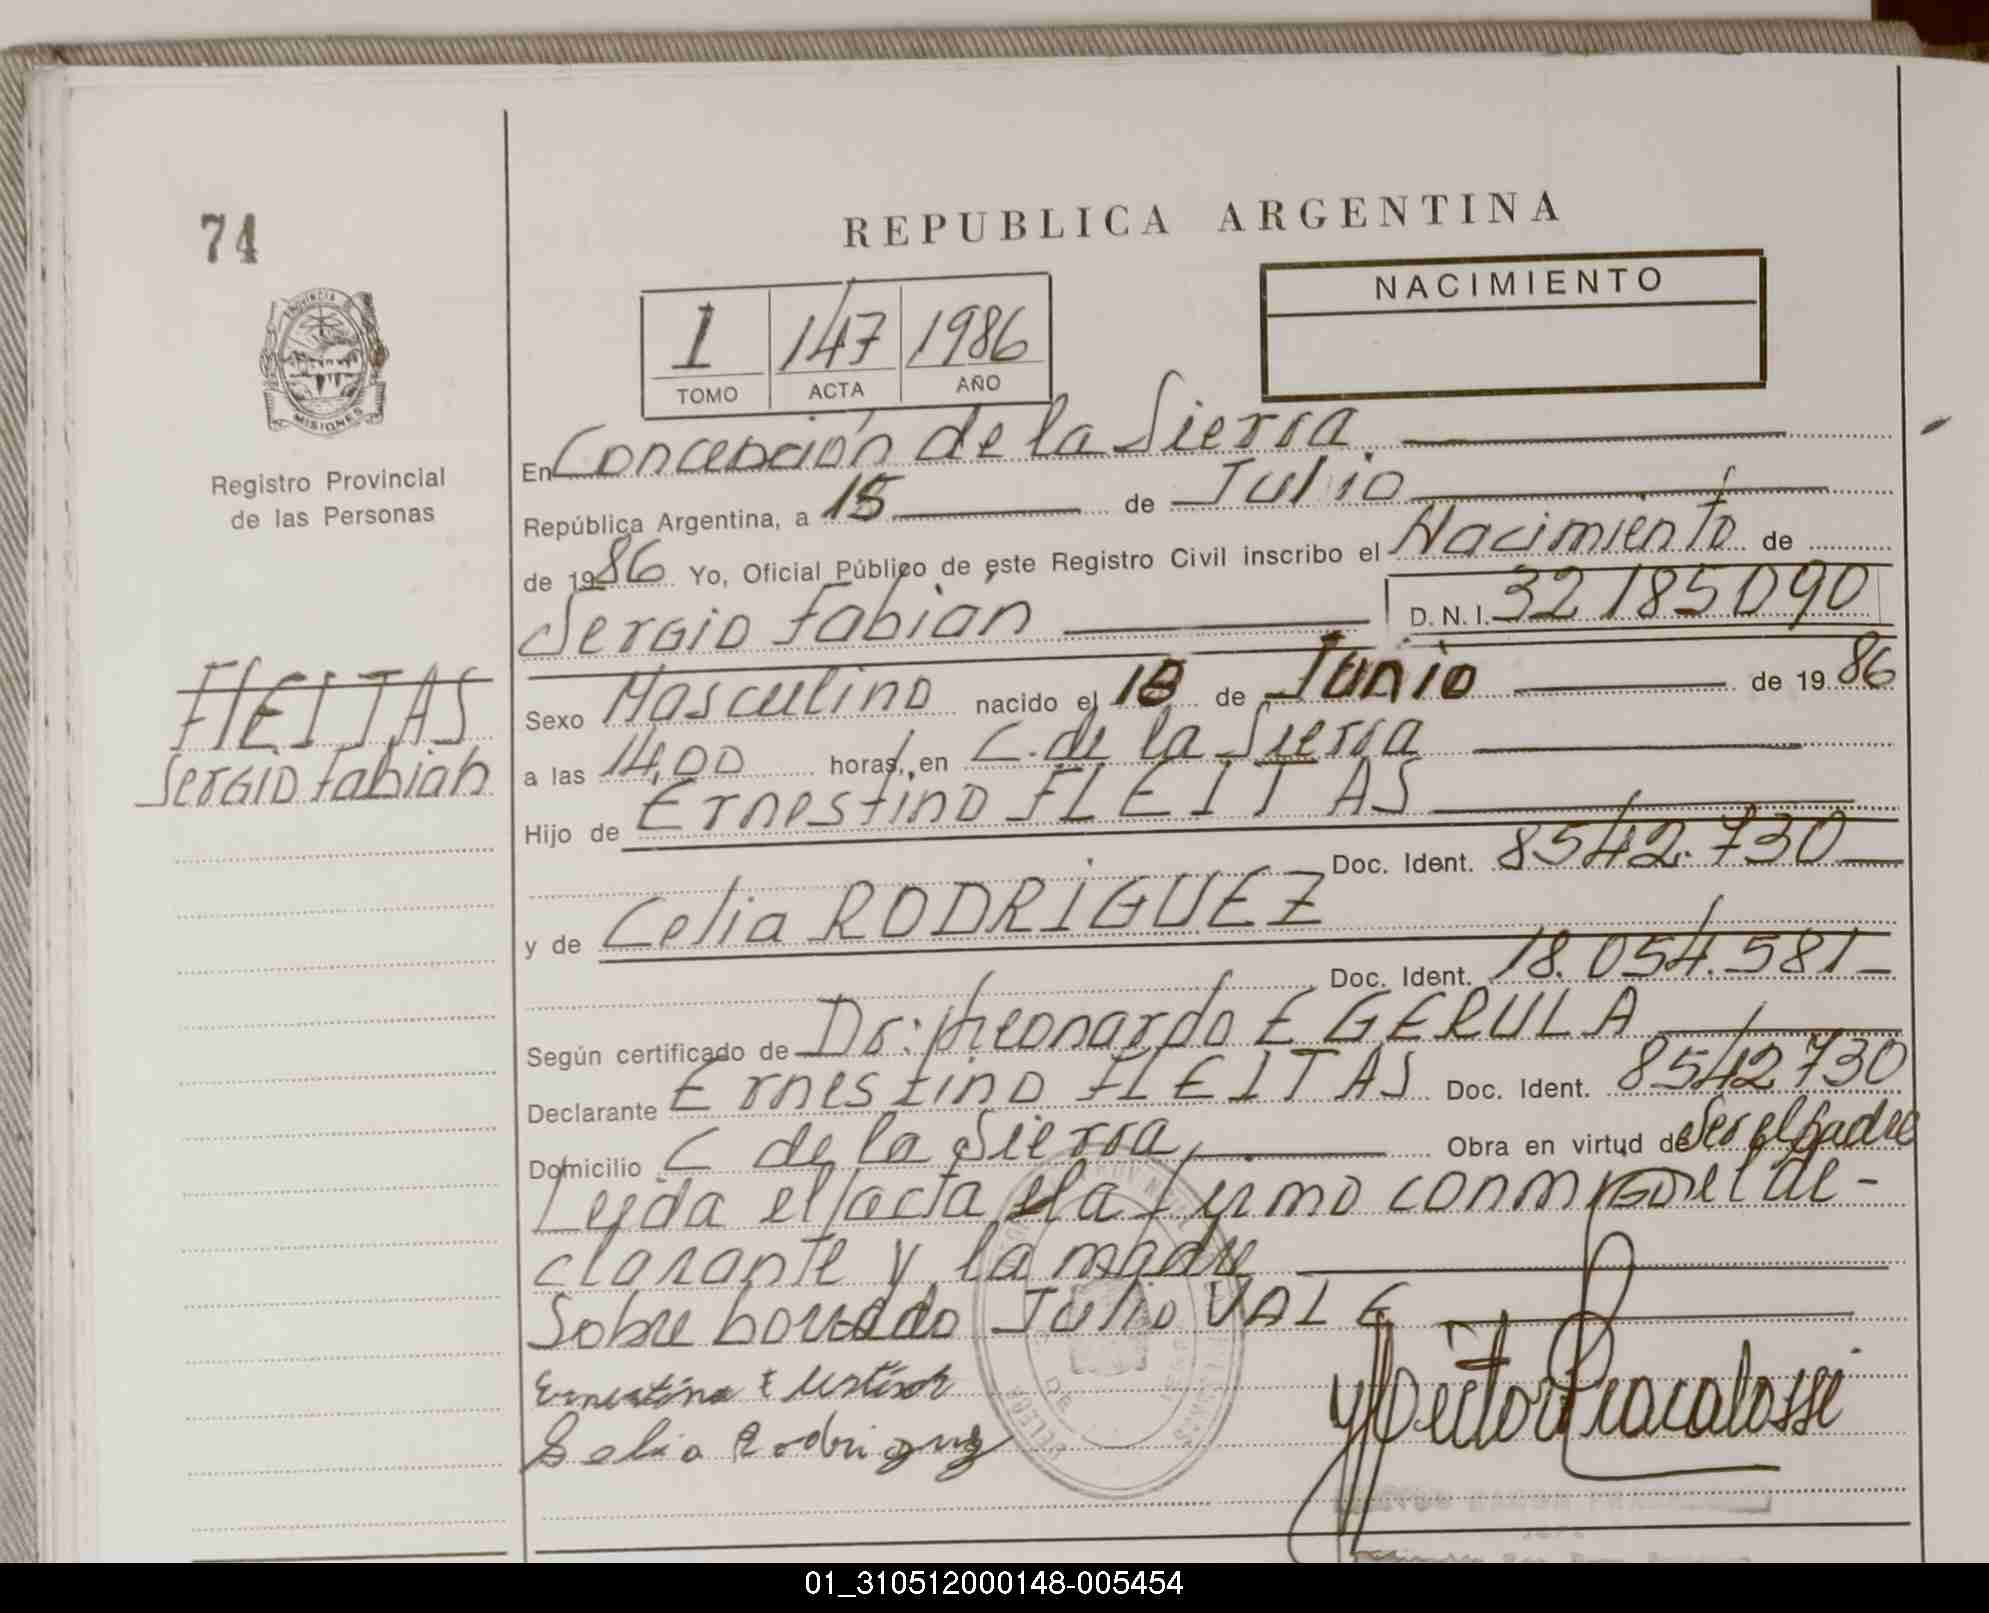 74
REPUBLICA ARGENTINA
NACIMIENTO
1 147 1986
TOMO ACTA AÑO
PROVINCIA DE
MISIONES
Registro Provincial
de las Personas
FlEITAS
Sergio Fabian
En Concepción de la Sierra
República Argentina, a 15 de Julio
de 1986 Yo, Oficial Público de este Registro Civil inscribo el Nacimiento de
Sergio Fabian D. N. I. 32185090
Sexo Masculino nacido el 18 de Junio de 1986
a las 14,00 horas, en C. de la Sierra
Hijo de Ernestino FLEITAS
Doc. Ident. 8542.730
y de Celia RODRIGUEZ
Doc. Ident. 18.054.581
Según certificado de Dr: Leonardo E GERULA
Declarante Ernestino FLEITAS Doc. Ident. 8542730
Domicilio C de la Sierra, Obra en virtud de Ser el padre
Leida el acta la firmo conmigo el de-
clarante y la madre
Sobre borrado Julio VALE
Celia Rodriguez
01_310512000148-005454